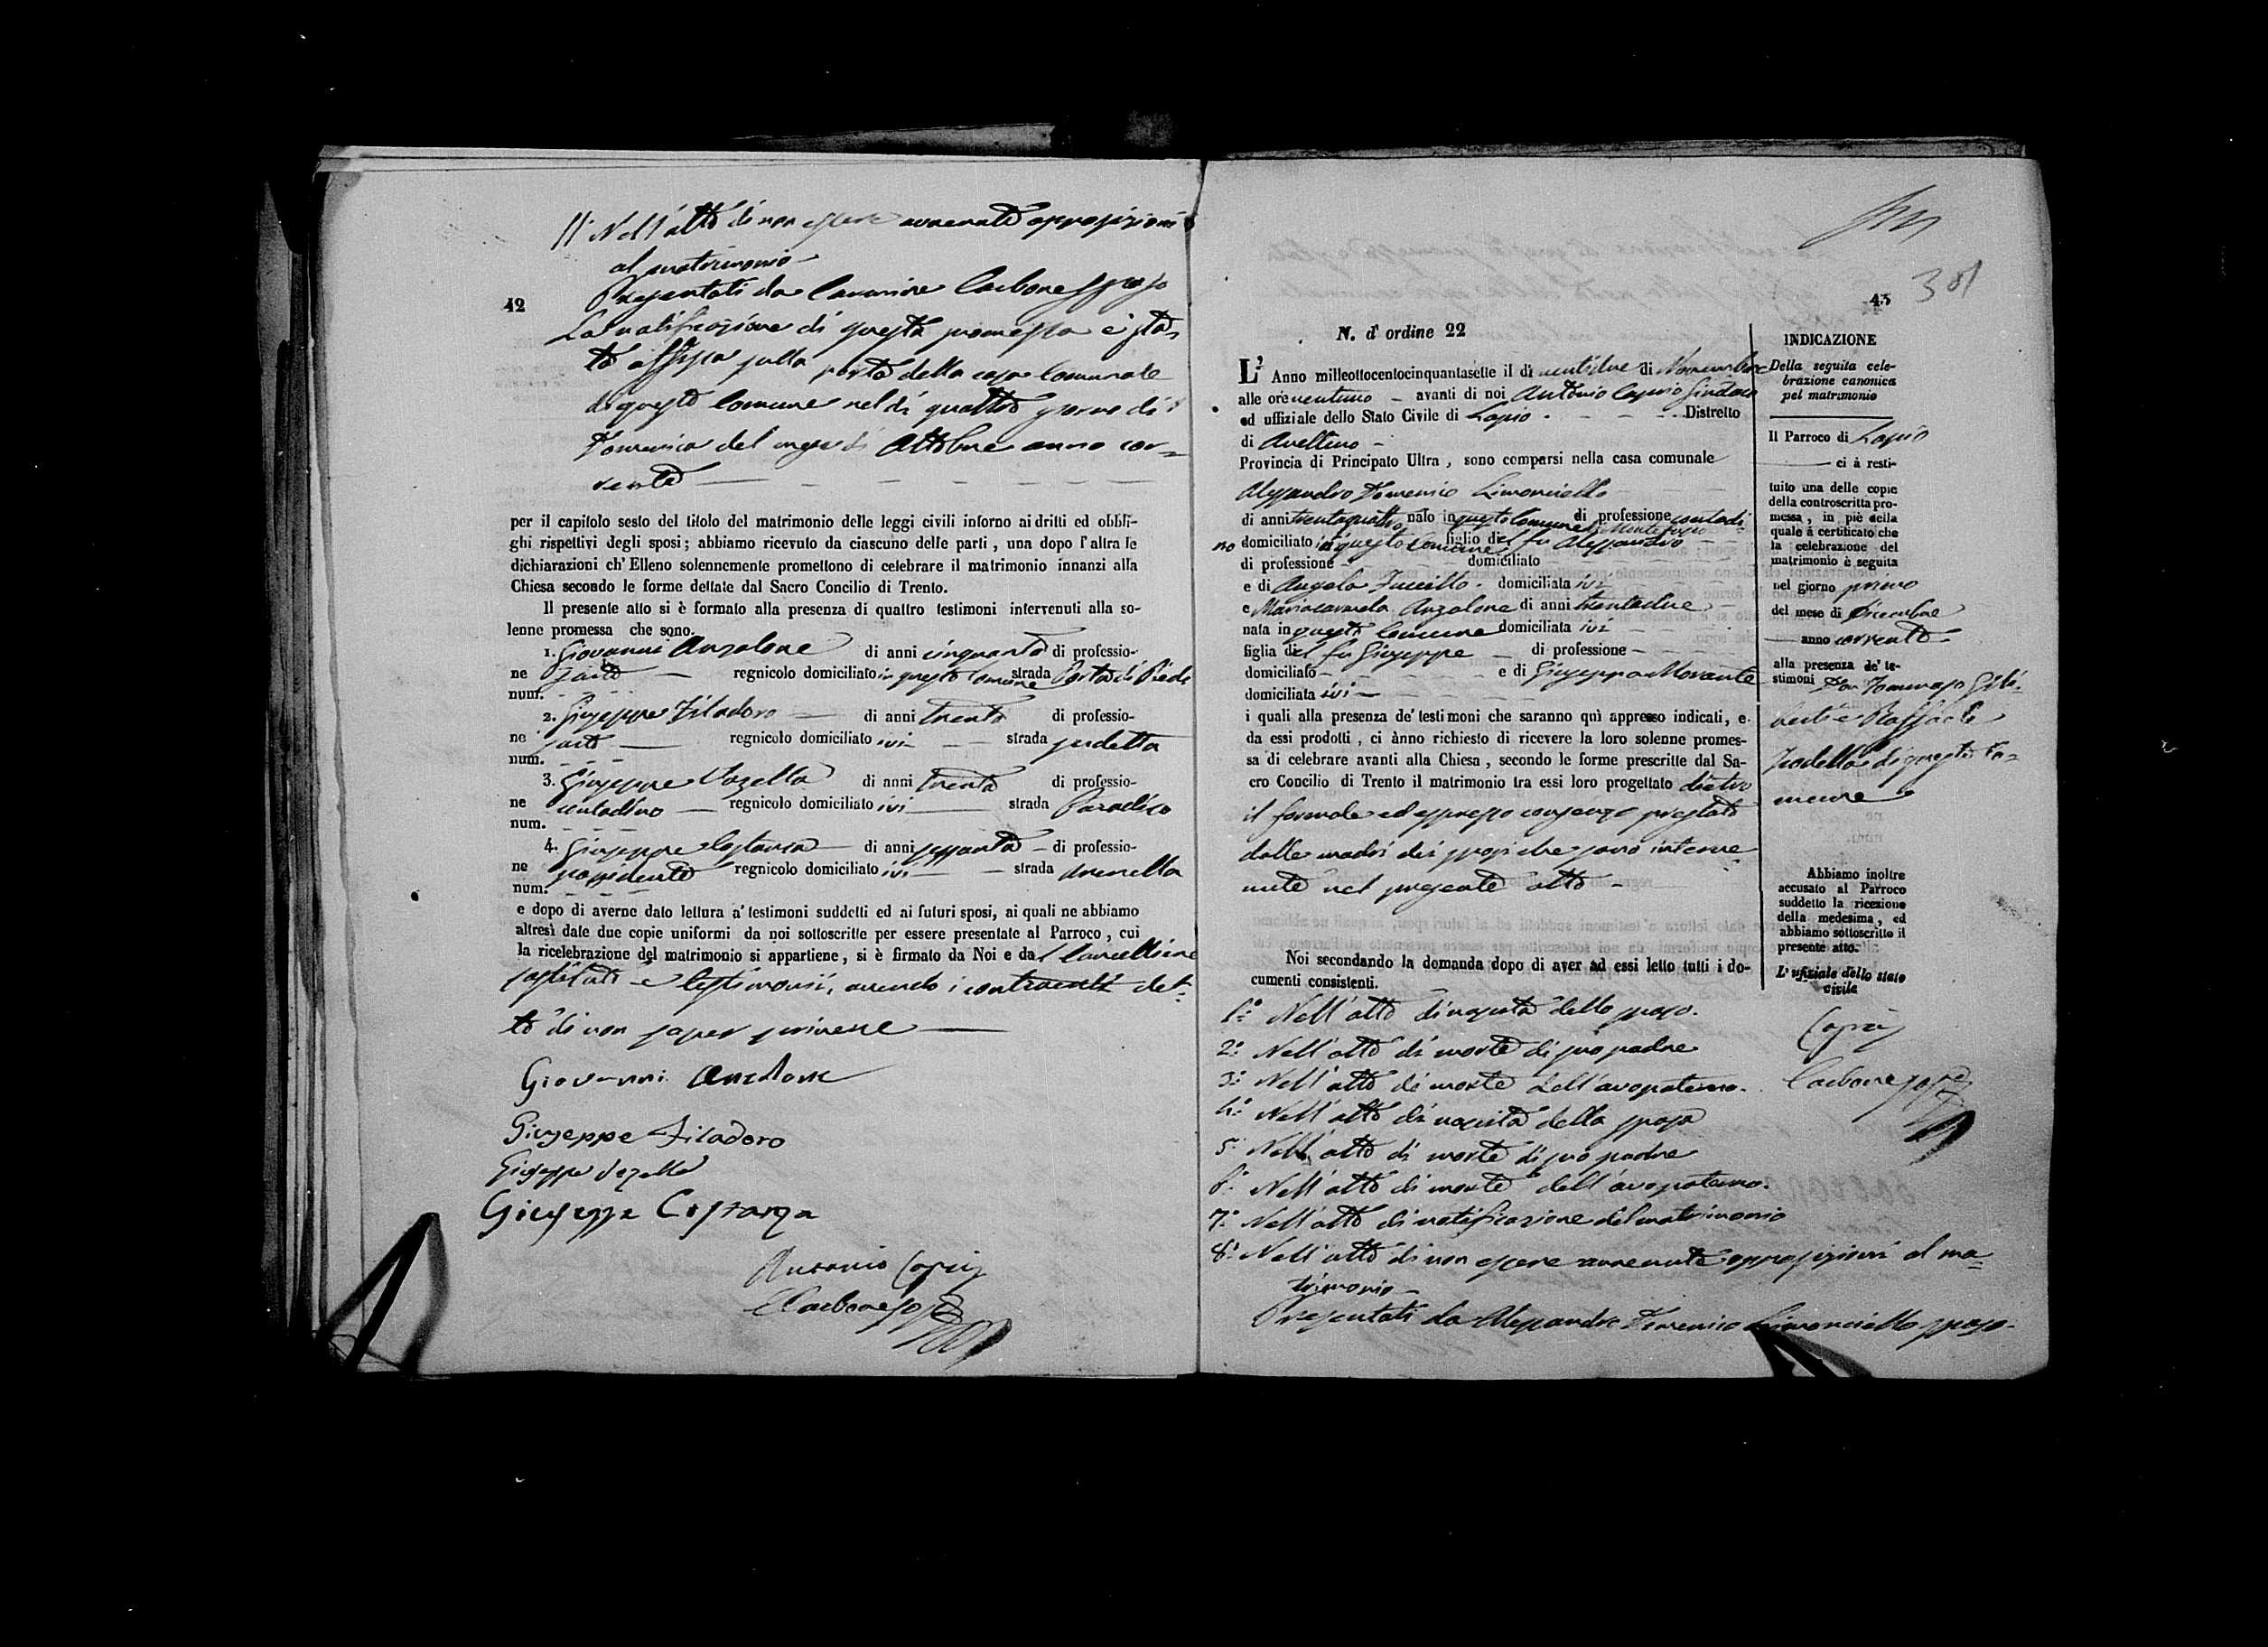 11. Nell'atto di non essere avvenute opposizioni
al matrimonio
Presentati da Carmine Carbone sposo
42
La notificazione di questa promessa è sta-
ta affissa sulla porta della casa Comunale
di questo Comune nel dì quattro giorno di
Domenica del mese di Ottobre anno cor-
rente
per il capitolo sesto del titolo del matrimonio delle leggi civili intorno ai dritti ed obbli-
ghi rispettivi degli sposi; abbiamo ricevuto da ciascuno delle parti, una dopo l'altra le
dichiarazioni ch'Elleno solennemente promettono di celebrare il matrimonio innanzi alla
Chiesa secondo le forme dettate dal Sacro Concilio di Trento.
Il presente atto si è formato alla presenza di quattro testimoni intervenuti alla so-
lenne promessa che sono.
1. Giovanni Anzalone di anni cinquanta di professio-
ne sarto regnicolo domiciliato in questo Comune strada Porta di Piedi
num.
2. Giuseppe Filadoro di anni trenta di professio-
ne sarto regnicolo domiciliato ivi strada
num.
3. Giuseppe Vozella di anni trenta di professio-
ne contadino regnicolo domiciliato ivi strada Paradiso
num.
4. Giuseppe Costanza di anni sessanta di professio-
ne possidente regnicolo domiciliato ivi strada
num.
e dopo di averne dato lettura a' testimoni suddetti ed ai futuri sposi, ai quali ne abbiamo
altresì date due copie uniformi da noi sottoscritte per essere presentate al Parroco, cui
la ricelebrazione del matrimonio si appartiene, si è firmato da Noi e dal Cancelliere
sostituto e testimonii, avendo i contraenti det-
to di non saper scrivere
Giovanni Anzalone
Giuseppe Filadoro
Giuseppe Vozella
Giuseppe Costanza
Antonio Caprio
Carbone
301
43
N. d'ordine 22
L'Anno milleottocentocinquantasette il dì ventidue di Novembre
alle ore ventuno avanti di noi Antonio Caprio Sindaco
ed uffiziale dello Stato Civile di Lapio Distretto
di Avellino
Provincia di Principato Ultra, sono comparsi nella casa comunale
Alessandro Domenico Limonciello
di anni trentaquattro nato in questo Comune di Montefusco di professione contadi-
no domiciliato in questo Comune figlio del fu Alessandro
di professione domiciliato
e di Angela Fuccillo domiciliata ivi
e Mariacarmela Anzalone di anni trentadue
nata in questo Comune domiciliata ivi
figlia del fu Giuseppe di professione
domiciliato e di Giuseppa Morante
domiciliata ivi
i quali alla presenza de' testimoni che saranno quì appresso indicati, e
da essi prodotti, ci ànno richiesto di ricevere la loro solenne promes-
sa di celebrare avanti alla Chiesa, secondo le forme prescritte dal Sa-
cro Concilio di Trento il matrimonio tra essi loro progettato dietro
il formale ed espresso consenso prestato
dalle madri dei sposi che sono interve-
nute nel presente atto
Noi secondando la domanda dopo di aver ad essi letto tutti i do-
cumenti consistenti.
1.° Nell'atto di nascita dello sposo.
2.° Nell'atto di morte di suo padre
3.° Nell'atto di morte dell'avo paterno.
4.° Nell'atto di nascita della sposa
5. Nell'atto di morte di suo padre
6.° Nell'atto di morte dell'avo paterno.
7.° Nell'atto di notificazione del matrimonio
8.° Nell'atto di non essere avvenute opposizioni al ma-
trimonio
Presentati da Alessandro Domenico Limonciello sposo
INDICAZIONE
Della seguita cele-
brazione canonica
pel matrimonio
Il Parroco di Lapio
ci à resti-
tuito una delle copie
della controscritta pro-
messa, in piè della
quale à certificato che
la celebrazione del
matrimonio è seguita
nel giorno primo
del mese di Dicembre
anno corrente
alla presenza de' te-
stimoni Don Tommaso Gili-
berti e Raffaele
di questo Co-
mune
Abbiamo inoltre
accusato al Parroco
suddetto la ricezione
della medesima, ed
abbiamo sottoscritto il
presente atto.
L'ufiziale dello stato
civile
Caprio
Carbone